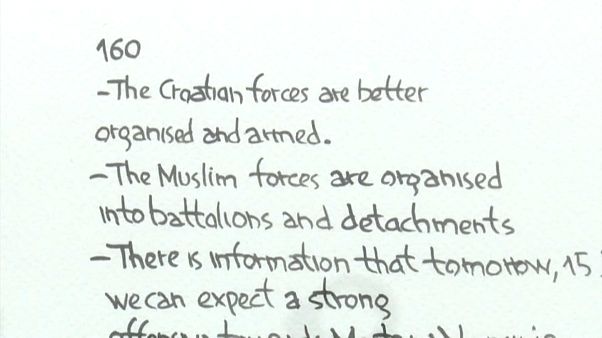 160
-The Croatian forces are better
organised and armed.
-The Muslim forces are organised
into battalions and detachments
-There is information that tomorrow, 15
we can expect a strong